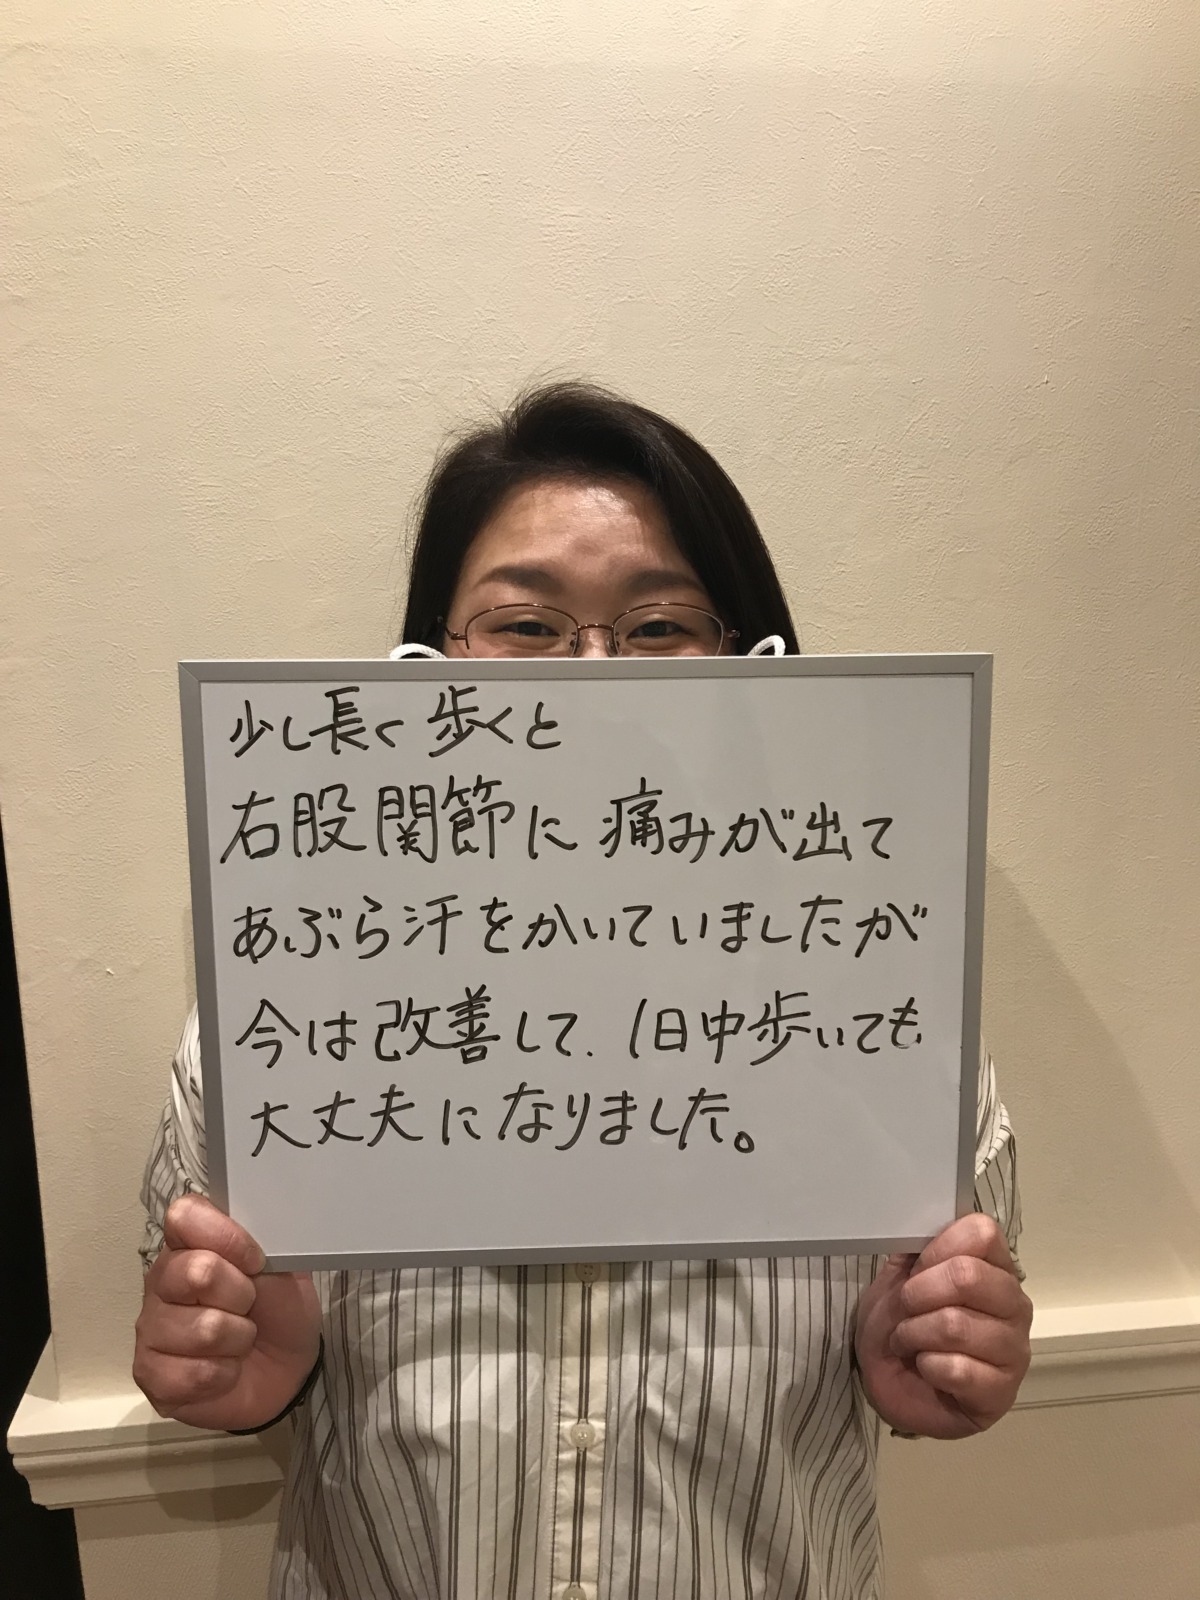 少し長く歩くと
右股関節に痛みが出て
あぶら汗をかいていましたが
今は改善して、1日中歩いても
大丈夫になりました。